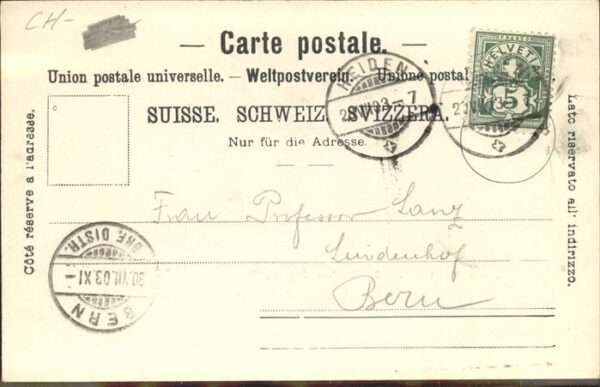 CH-
— Carte postale. —
Union postale universelle. — Weltpostverein. — Unione postale
SUISSE. SCHWEIZ. SVIZZERA.
Nur für die Adresse.
Côté réservé à l'adresse.
Lato riservato all' indirizzo.
HEIDEN
VII.03
7
HELVETIA
FRANCO
5
Frau Professor Lanz
Lindenhof
Bern
BERN
30.VII.03.XI
BRF. DISTR.